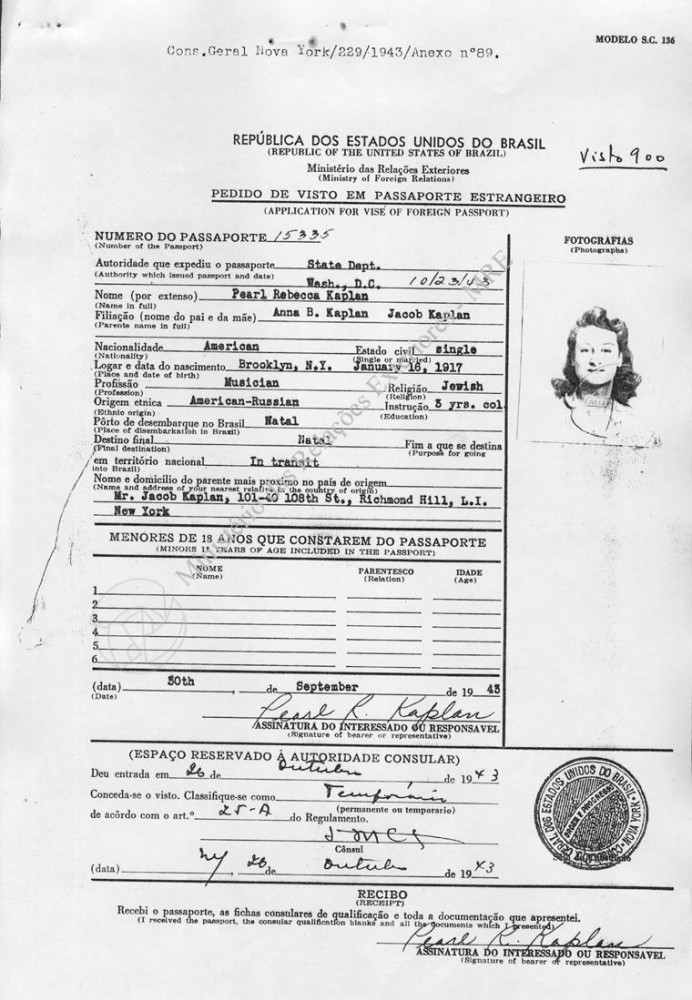 MODELO S.C. 136
Cons.Geral Nova York/229/1943/Anexo nº89.
REPÚBLICA DOS ESTADOS UNIDOS DO BRASIL
(REPUBLIC OF THE UNITED STATES OF BRAZIL)
Visto 900
Ministério das Relações Exteriores
(Ministry of Foreign Relations)
PEDIDO DE VISTO EM PASSAPORTE ESTRANGEIRO
(APPLICATION FOR VISE OF FOREIGN PASSPORT)
NUMERO DO PASSAPORTE 15335
(Number of the Passport)
FOTOGRAFIAS
(Photographs)
Autoridade que expediu o passaporte State Dept.
(Authority which issued passport and date)
Wash., D.C. 10/23/43
Nome (por extenso) Pearl Rebecca Kaplan
(Name in full)
Filiação (nome do pai e da mãe) Anna B. Kaplan Jacob Kaplan
(Parents name in full)
Nacionalidade American Estado civil single
(Nationality) (Single or married)
Logar e data do nascimento Brooklyn, N.Y. January 16, 1917
(Place and date of birth)
Profissão Musician Religião Jewish
(Profession) (Religion)
Origem etnica American-Russian Instrução 3 yrs. col
(Ethnic origin) (Education)
Pôrto de desembarque no Brasil Natal
(Place of disembarkation in Brazil)
Destino final Natal Fim a que se destina
(Final destination) (Purpose for going
em território nacional In transit
into Brazil)
Nome e domicílio do parente mais proximo no país de origem
(Name and address of your nearest relative in the country of origin)
Mr. Jacob Kaplan, 101-40 108th St., Richmond Hill, L.I.
New York
MENORES DE 18 ANOS QUE CONSTAREM DO PASSAPORTE
(MINORS 18 YEARS OF AGE INCLUDED IN THE PASSPORT)
NOME PARENTESCO IDADE
(Name) (Relation) (Age)
1
2
3
4
5
6
(data) 30th de September de 19 43
(Date)
Pearl R. Kaplan
ASSINATURA DO INTERESSADO OU RESPONSAVEL
(Signature of bearer or representative)
(ESPAÇO RESERVADO À AUTORIDADE CONSULAR)
Deu entrada em 26 de Outubro de 1943
Conceda-se o visto. Classifique-se como Temporário
(permanente ou temporario)
de acôrdo com o art.º 25-A do Regulamento.
Cônsul
(data) NY 26 de outubro de 1943
CONSULADO GERAL DOS ESTADOS UNIDOS DO BRASIL NOVA YORK
RECIBO
(RECEIPT)
Recebi o passaporte, as fichas consulares de qualificação e toda a documentação que apresentei.
(I received the passport, the consular qualification blanks and all the documents which I presented)
Pearl R. Kaplan
ASSINATURA DO INTERESSADO OU RESPONSAVEL
(Signature of bearer or representative)
Ministério das Relações Exteriores - MRE